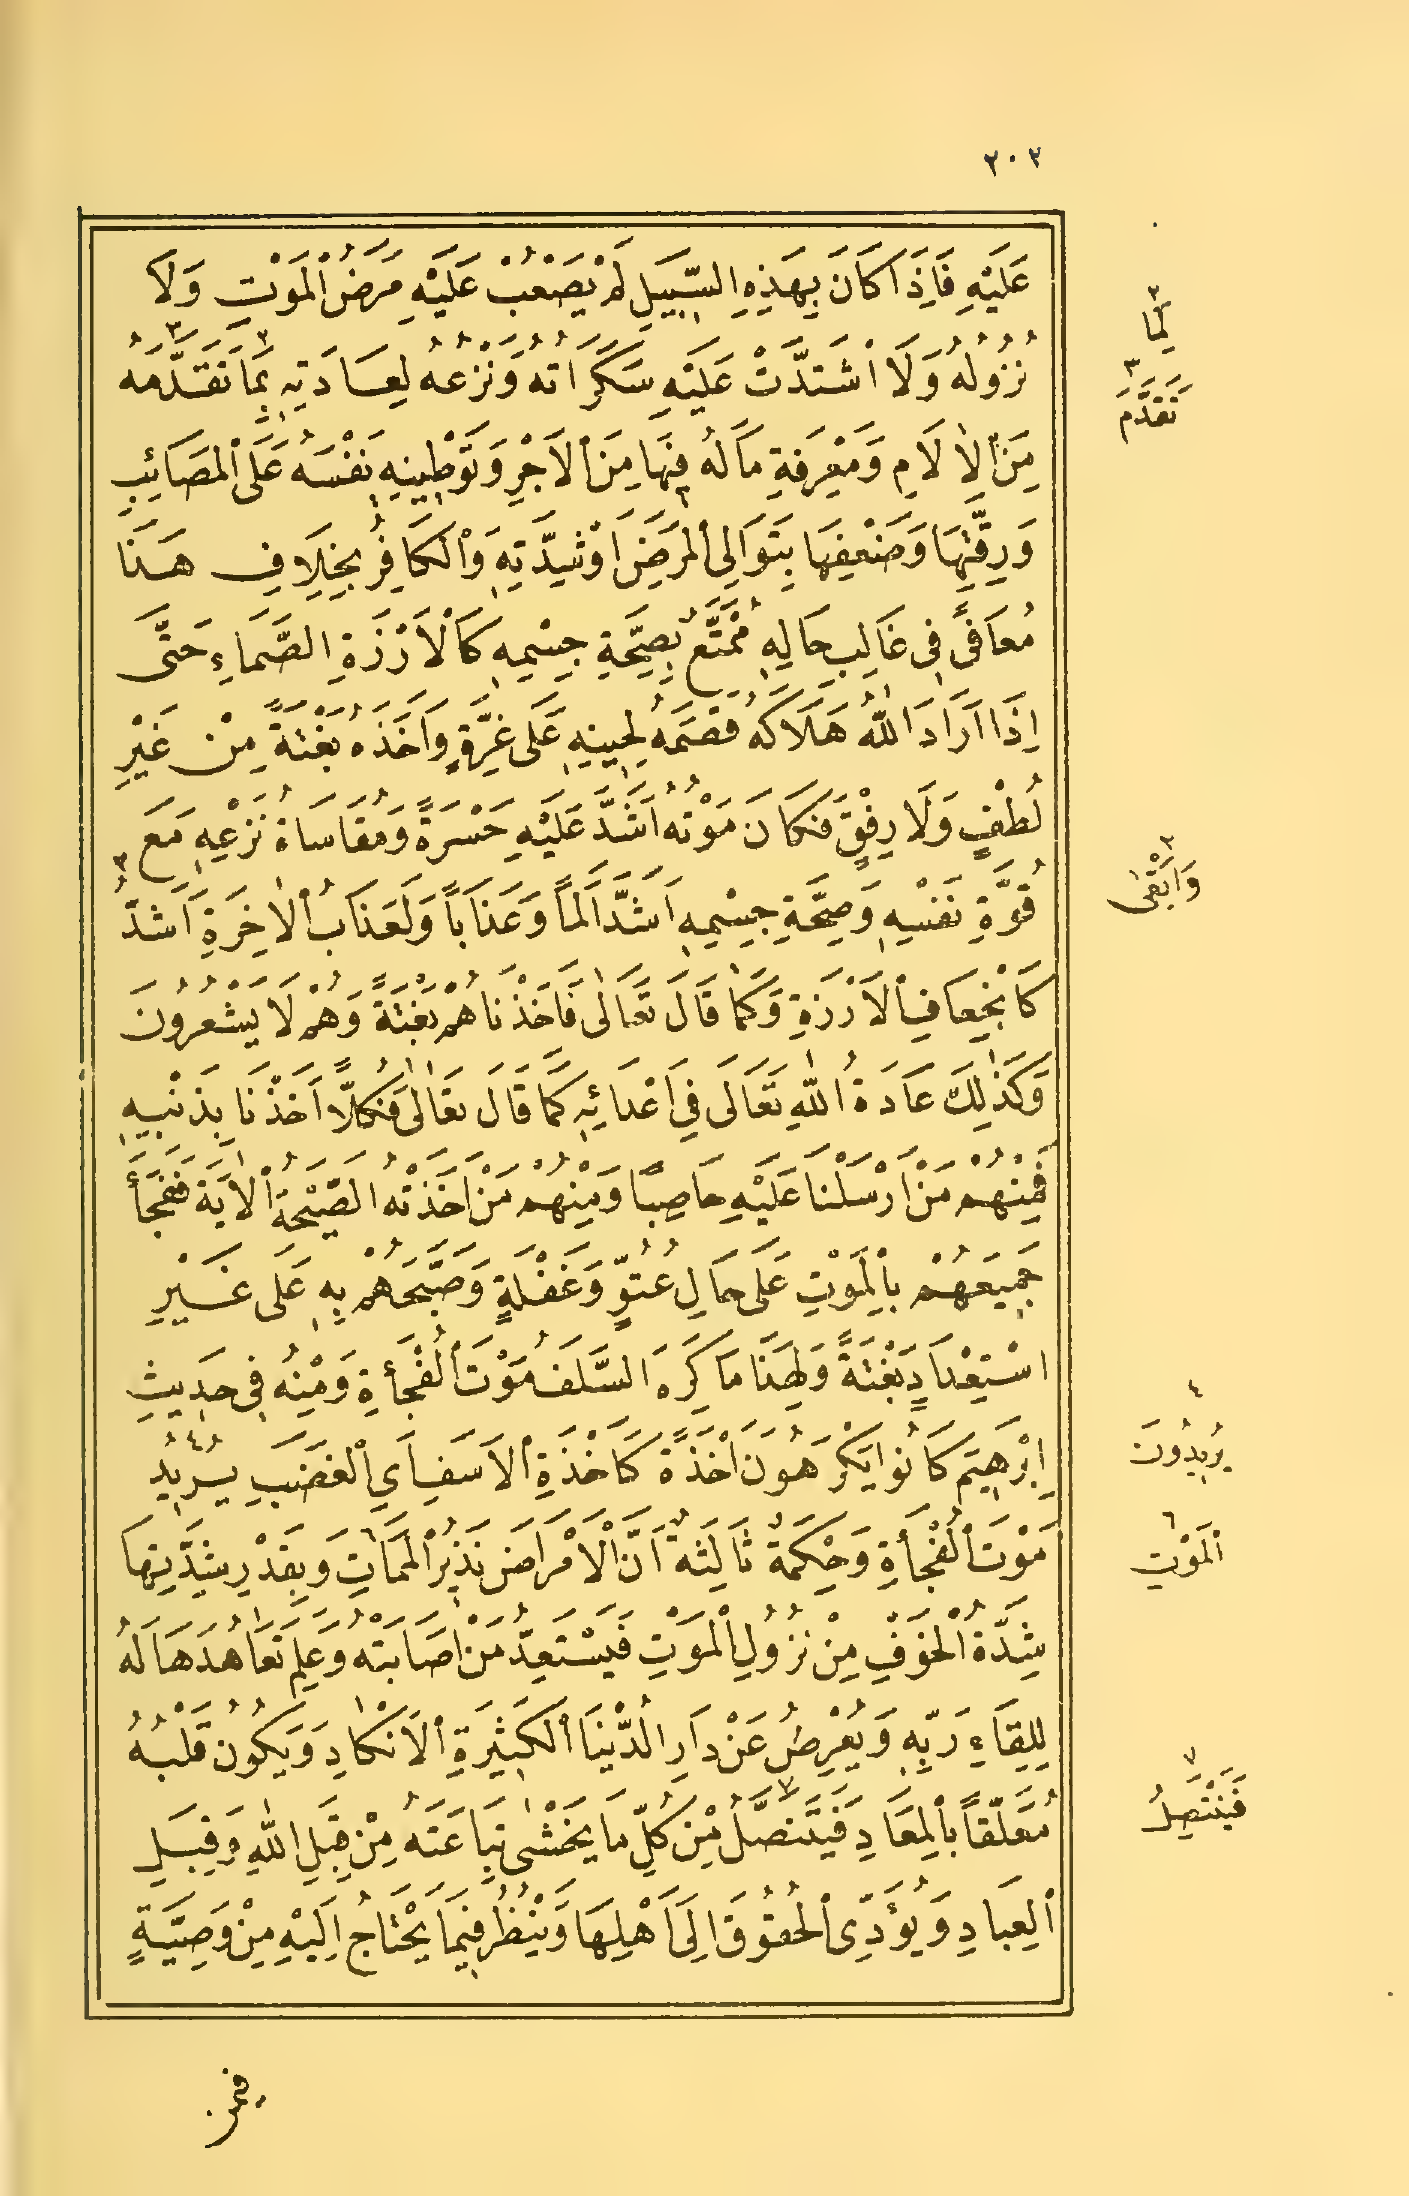 ٢٠٣
عَلَيْهِ فَاِذَا كَانَ بِهٰذِهِ السَّبِيلِ لَمْ يَصْعُبْ عَلَيْهِ مَرَضُ الْمَوْتِ وَلَا
نُزُولُهُ وَلَا اشْتَدَّتْ عَلَيْهِ سَكَرَاتُهُ وَنَزْعُهُ لِعَادَتِهِ بِمَا تَقَدَّمَهُ
مِنَ الْاٰلَامِ وَمَعْرِفَةِ مَا لَهُ فِيهَا مِنَ الْاَجْرِ وَتَوْطِينِهِ نَفْسَهُ عَلَى الْمَصَائِبِ
وَرِقَّتِهَا وَضَعْفِهَا بِتَوَالِى الْمَرَضِ اَوْ شِدَّتِهِ وَالْكَافِرُ بِخِلَافِ هٰذَا
مُعَافًى فِى غَالِبِ حَالِهِ مُمَتَّعٌ بِصِحَّةِ جِسْمِهِ كَالْاَرْزَةِ الصَّمَّاءِ حَتّٰى
اِذَا اَرَادَ اللّٰهُ هَلَاكَهُ قَصَمَهُ لِحِينِهِ عَلٰى غِرَّةٍ وَاَخَذَهُ بَغْتَةً مِنْ غَيْرِ
لُطْفٍ وَلَا رِفْقٍ فَكَانَ مَوْتُهُ اَشَدَّ عَلَيْهِ حَسْرَةً وَمُقَاسَاةُ نَزْعِهِ مَعَ
قُوَّةِ نَفْسِهِ وَصِحَّةِ جِسْمِهِ اَشَدَّ اَلَمًا وَعَذَابًا وَلَعَذَابُ الْاٰخِرَةِ اَشَدُّ ٣
كَانْجِعَافِ الْاَرْزَةِ وَكَمَا قَالَ تَعَالٰى فَاَخَذْنَاهُمْ بَغْتَةً وَهُمْ لَا يَشْعُرُونَ
وَكَذٰلِكَ عَادَةُ اللّٰهِ تَعَالَى فِى اَعْدَائِهِ كَمَا قَالَ تَعَالٰى فَكُلًّا اَخَذْنَا بِذَنْبِهِ
فَمِنْهُمْ مَنْ اَرْسَلْنَا عَلَيْهِ حَاصِبًا وَمِنْهُمْ مَنْ اَخَذَتْهُ الصَّيْحَةُ الْاٰيَةَ فَفَجَأَ
جَمِيعَهُمْ بِالْمَوْتِ عَلَى حَالِ عُتُوٍّ وَغَفْلَةٍ وَصَبَّحَهُمْ بِهِ عَلَى غَيْرِ
اسْتِعْدَادٍ بَغْتَةً وَلِهٰذَا مَا كَرِهَ السَّلَفُ مَوْتَ الْفُجْأَةِ وَمِنْهُ فِى حَدِيثِ
اِبْرٰهِيمَ كَانُوا يَكْرَهُونَ اَخْذَةً كَاَخْذَةِ الْاَسَفِ اَيِ الْغَضَبِ يُرِيدُ ٤
مَوْتَ الْفُجْأَةِ وَحِكْمَةٌ ثَالِثَةٌ اَنَّ الْاَمْرَاضَ نَذِيرُ الْمَمَاتِ ٦ وَبِقَدْرِ شِدَّتِهَا
شِدَّةُ الْخَوْفِ مِنْ نُزُولِ الْمَوْتِ فَيَسْتَعِدُّ مَنْ اَصَابَتْهُ وَعَلِمَ تَعَاهُدَهَا لَهُ
لِلِقَاءِ رَبِّهِ وَيُعْرِضُ عَنْ دَارِ الدُّنْيَا الْكَثِيرَةِ الْاَنْكَادِ وَيَكُونُ قَلْبُهُ
مُعَلَّقًا بِالْمَعَادِ فَيَتَنَصَّلُ ٧ مِنْ كُلِّ مَا يَخْشٰى تِبَاعَتَهُ مِنْ قِبَلِ اللّٰهِ وَقِبَلِ
الْعِبَادِ وَيُؤَدِّى الْحُقُوقَ اِلَى اَهْلِهَا وَيَنْظُرُ فِيمَا يَحْتَاجُ اِلَيْهِ مِنْ وَصِيَّةٍ
٢
لِمَا
٣
تَقَدَّمَ
٣
وَاَبْقٰى
٤
يُرِيدُونَ
٦
الْمَوْتِ
٧
فَيَنْتَصِلُ